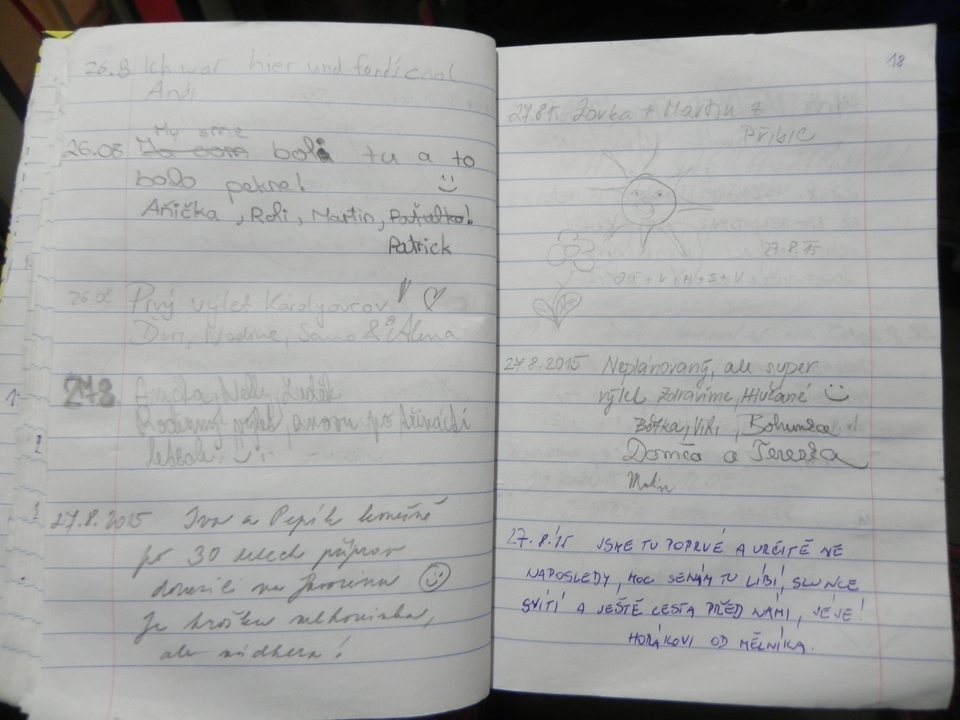 26.8 Ich war hier und fand's cool
Andi
My sme
26.08 Ja som boli tu a to
bolo pekne! :)
Anička, Roli, Martin, Paťulka!
Patrick
26.08 Prvý výlet Károlyovcov
Ďuri, Nadine, Samo & Alma
27.8
Rodinný výlet, znovu po třinácti
letech :)
27.8.2015 Iva a Pepík konečně
po 30 letech příprav
dorazili na
Je trošku mlhovinka,
ale nádhera!
18
27.8.15 Zorka + Martin z
Přibic
27.8.15
27.8.2015 Neplánovaný, ale super
výlet Zdravíme, Hlučané :)
Bětka, Viki, Bohunka
Domča a Terezka
27.8.'15 JSME TU POPRVÉ A URČITĚ NE
NAPOSLEDY, MOC SE NÁM TU LÍBÍ, SLUNCE
SVÍTÍ A JEŠTĚ CESTA PŘED NÁMI, JÉJE!
HORÁKOVI OD MĚLNÍKA.